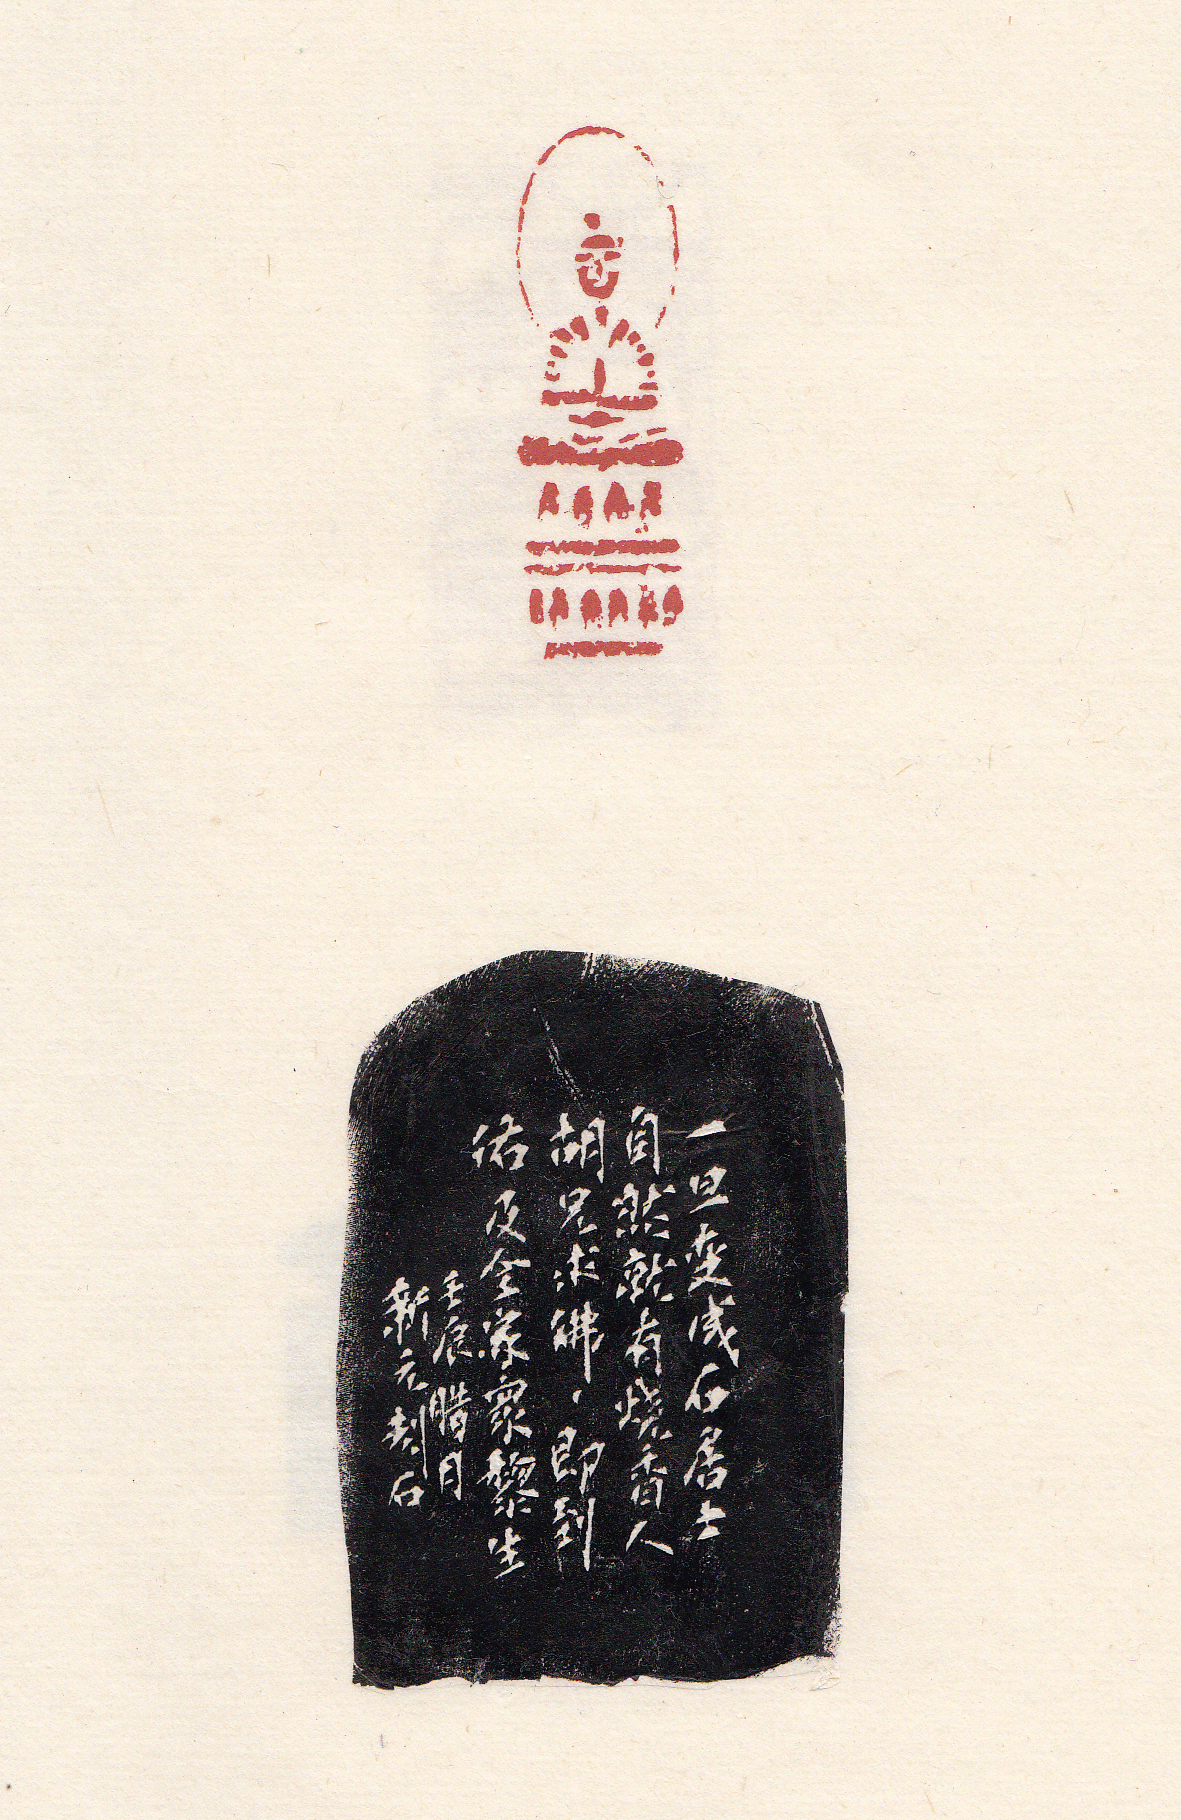 一旦变成石居士
自然就有烧香人
胡兄求佛、即到
佑及全家众黎生
壬辰腊月
新元刻石